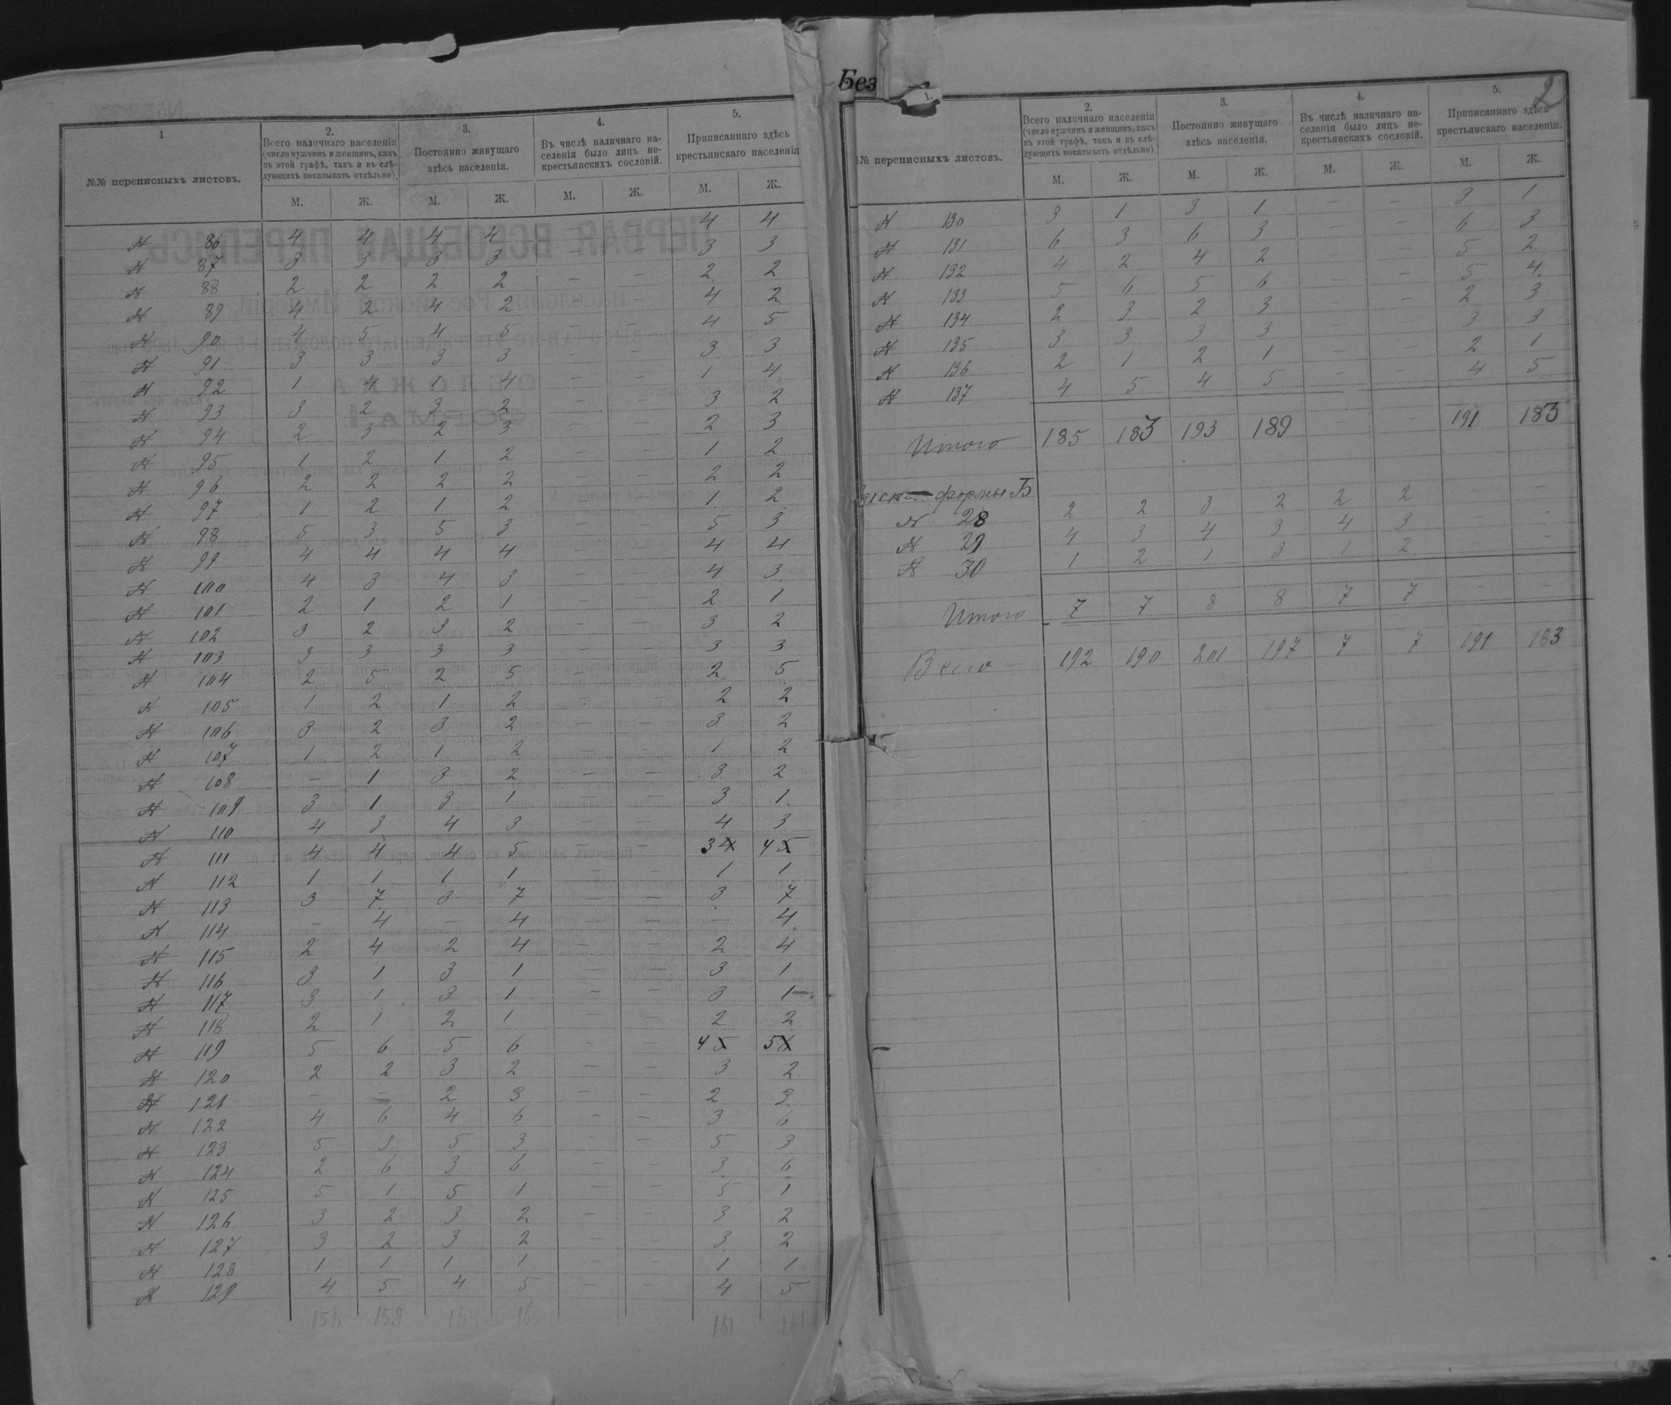 Без
1.
2.
3.
4.
5.
№№ переписныхъ листовъ.
Всего наличнаго населенія (число мужчинъ и женщинъ, какъ въ этой графѣ, такъ и въ слѣдующихъ показывать отдѣльно)
Постоянно живущаго здѣсь населенія.
Въ числѣ наличнаго населенія было лицъ некрестьянскихъ сословій.
Приписаннаго здѣсь крестьянскаго населенія
М. Ж. М. Ж. М. Ж. М. Ж.
№ 86 4 4 4 4 – – 4 4
№ 87 3 3 3 3 – – 3 3
№ 88 2 2 2 2 – – 2 2
№ 89 4 2 4 2 – – 4 2
№ 90 4 5 4 5 – – 4 5
№ 91 3 3 3 3 – – 3 3
№ 92 1 4 1 4 – – 1 4
№ 93 3 2 3 2 – – 3 2
№ 94 2 3 2 3 – – 2 3
№ 95 1 2 1 2 – – 1 2
№ 96 2 2 2 2 – – 2 2
№ 97 1 2 1 2 – – 1 2
№ 98 5 3 5 3 – – 5 3
№ 99 4 4 4 4 – – 4 4
№ 100 4 3 4 3 – – 4 3
№ 101 2 1 2 1 – – 2 1
№ 102 3 2 3 2 – – 3 2
№ 103 3 3 3 3 – – 3 3
№ 104 2 5 2 5 – – 2 5
№ 105 1 2 1 2 – – 2 2
№ 106 3 2 3 2 – – 3 2
№ 107 1 2 1 2 – – 1 2
№ 108 – 1 3 2 – – 3 2
№ 109 3 1 3 1 – – 3 1
№ 110 4 3 4 3 – – 4 3
№ 111 4 4 4 5 – – 3 4
№ 112 1 1 1 1 – – 1 1
№ 113 3 7 3 7 – – 3 7
№ 114 – 4 – 4 – – – 4
№ 115 2 4 2 4 – – 2 4
№ 116 3 1 3 1 – – 3 1
№ 117 3 1 3 1 – – 3 1
№ 118 2 1 2 1 – – 2 2
№ 119 5 6 5 6 – – 4 5
№ 120 2 2 3 2 – – 3 2
№ 121 – – 2 3 – – 2 3
№ 122 4 6 4 6 – – 3 6
№ 123 5 3 5 3 – – 5 3
№ 124 2 6 3 6 – – 3 6
№ 125 5 1 5 1 – – 5 1
№ 126 3 2 3 2 – – 3 2
№ 127 3 2 3 2 – – 3 2
№ 128 1 1 1 1 – – 1 1
№ 129 4 5 4 5 – – 4 5
159 161
2
1.
2.
3.
4.
5.
№ переписныхъ листовъ.
Всего наличнаго населенія (число мужчинъ и женщинъ, какъ въ этой графѣ, такъ и въ слѣдующихъ показывать отдѣльно)
Постоянно живущаго здѣсь населенія.
Въ числѣ наличнаго населенія было лицъ некрестьянскихъ сословій.
Приписаннаго здѣсь крестьянскаго населенія.
М. Ж. М. Ж. М. Ж. М. Ж.
№ 130 3 1 3 1 – – 3 1
№ 131 6 3 6 3 – – 6 3
№ 132 4 2 4 2 – – 5 2
№ 133 5 6 5 6 – – 5 4
№ 134 2 3 2 3 – – 2 3
№ 135 3 3 3 3 – – 3 3
№ 136 2 1 2 1 – – 2 1
№ 137 4 5 4 5 – – 4 5
Итого 185 183 193 189 – – 191 183
формы Б
№ 28 2 2 3 2 2 2 – –
№ 29 4 3 4 3 4 3 – –
№ 30 1 2 1 3 1 2 – –
Итого 7 7 8 8 7 7 – –
Всего – 192 190 201 197 7 7 191 183